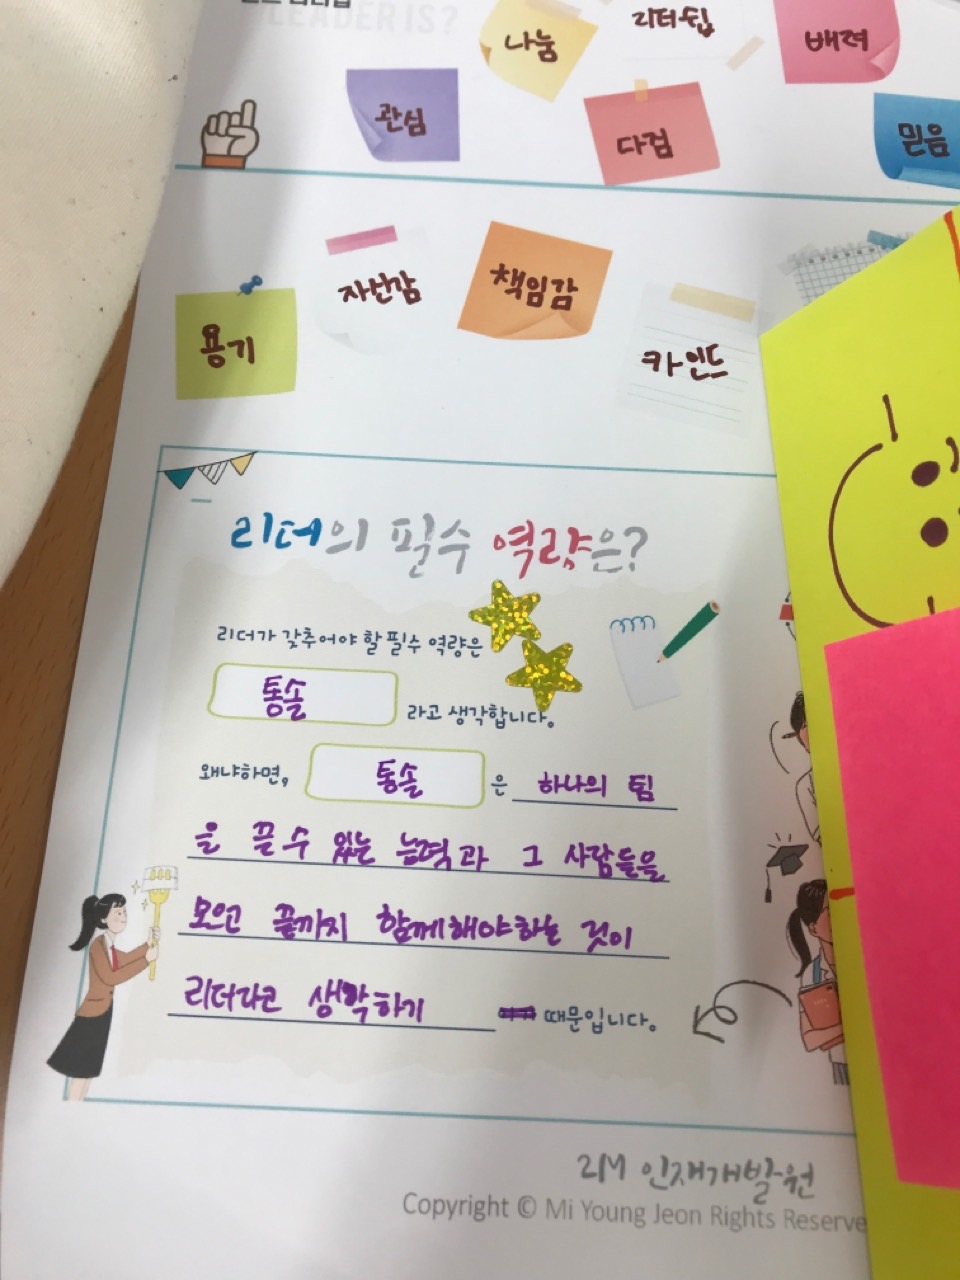 LEADER IS?
나눔
리더쉽
배려
관심
다검
믿음
자신감
책임감
용기
카인드
리더의 필수 역량은?
리더가 갖추어야 할 필수 역량은
통솔
라고 생각합니다.
왜냐하면, 통솔 은 하나의 팀
을 끌 수 있는 능력과 그 사람들을
모으고 끝까지 함께해야하는 것이
리더라고 생각하기 때문입니다.
리더M 인재개발원
Copyright © Mi Young Jeon Rights Reserve